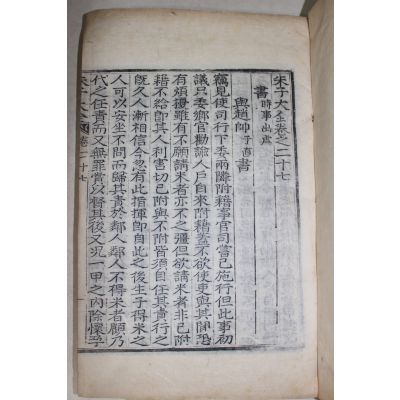 朱子大全卷之二十七
書 時事出處
與趙帥 子直 書
竊見使司下委兩隣附籍事官司嘗已施行但此事初
議只委鄉官勸諭人戶自來附籍蓋不欲使吏與其間恐
有煩擾雖有不願請米者亦不之彊但欲請米者非已附
籍不給即其人利害切已附與不附皆須自任其責行之
既久人漸相信今忽有此指揮即自此之後生子得米之
人可以安坐不問而歸其責於鄰人鄰人不得米者顧乃
代之任責而又無罪賞以督其後又況一甲之內除懷孕
朱子大全 卷二十七